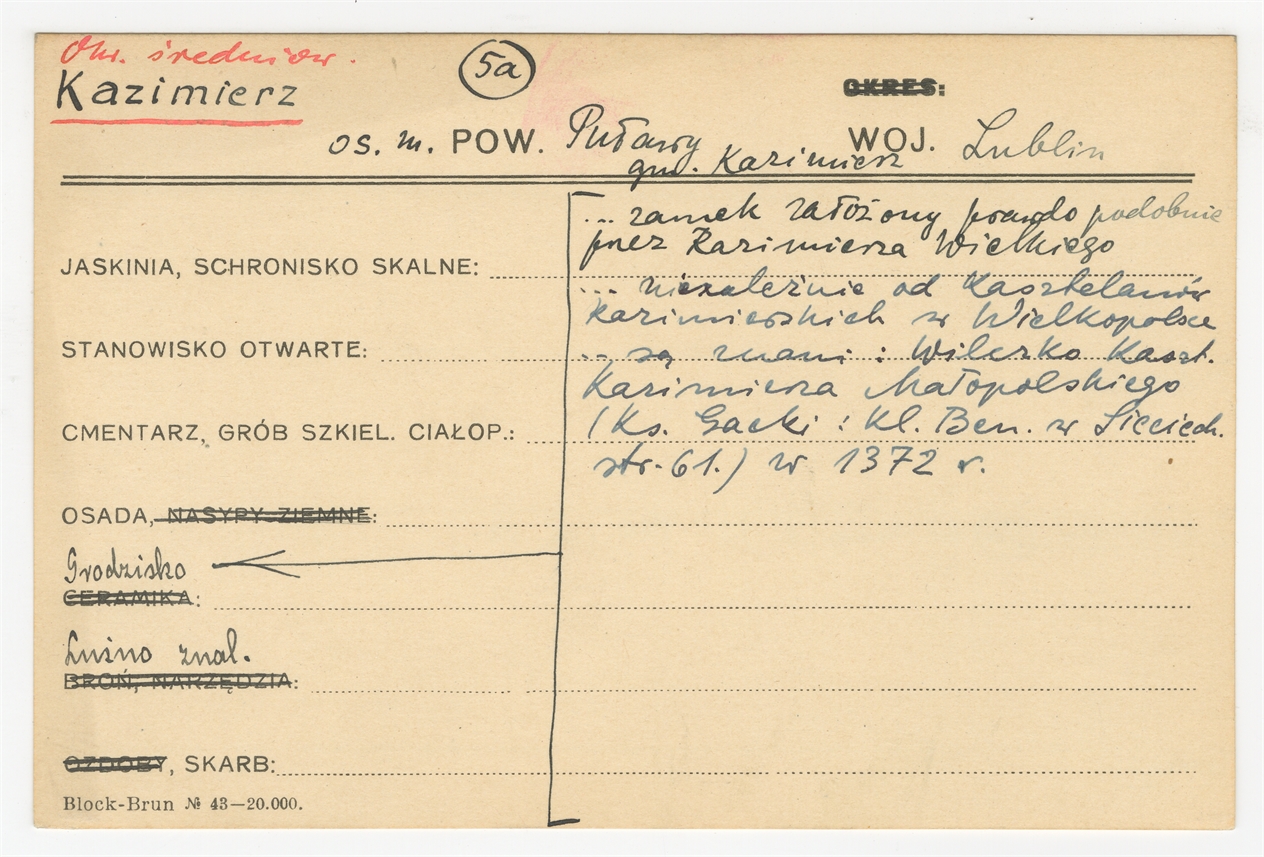 Okr. średniow.
Kazimierz
5a
OKRES:
os. m. POW. Puławy WOJ. Lublin
gm. Kazimierz
... zamek założony prawdo podobnie
przez Kazimierza Wielkiego
JASKINIA, SCHRONISKO SKALNE:
... niezależnie od Kasztelanów
Kazimierskich w Wielkopolsce
STANOWISKO OTWARTE:
... są znani : Wilczko Kaszt.
Kazimierza Małopolskiego
CMENTARZ, GRÓB SZKIEL. CIAŁOP.:
(Ks. Gacki : Kl. Ben. w Sieciech.
str. 61.) w 1372 r.
OSADA, NASYPY ZIEMNE:
Grodzisko
CERAMIKA:
Luźno znal.
BROŃ, NARZĘDZIA:
OZDOBY, SKARB:
Block-Brun № 43—20.000.